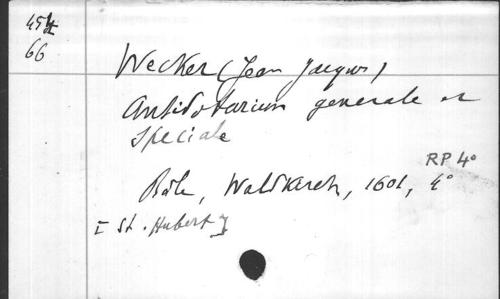 66
Wecker (Jean Jacques)
Antidotarium generale et
speciale
RP 4°
Bâle, Waldkirch, 1601, 4°
[St. Hubert]